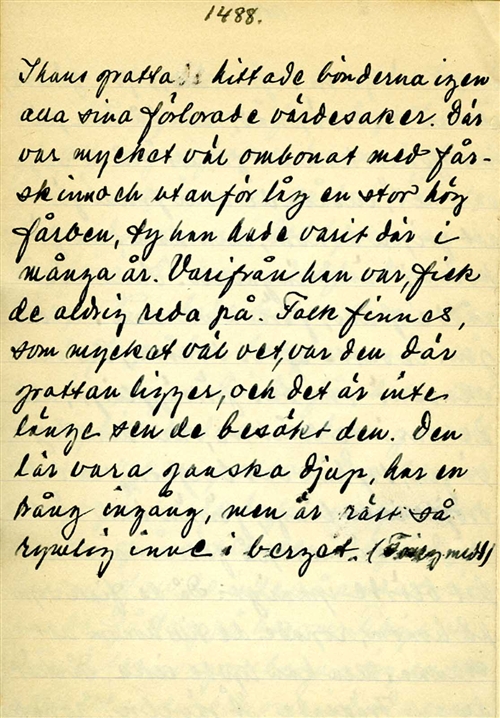 1488.
I hans grotta hittade bönderna igen
alla sina förlorade värdesaker. Där
var mycket väl ombonat med får-
skinn och utanför låg en stor hög
fårben, ty han hade varit där i
många år. Varifrån han var, fick
de aldrig reda på. Folk finnes,
som mycket väl vet, var den där
grottan ligger, och det är inte
länge sen de besökt den. Den
lär vara ganska djup, har en
trång ingång, men är rätt så
rymlig inne i berget.